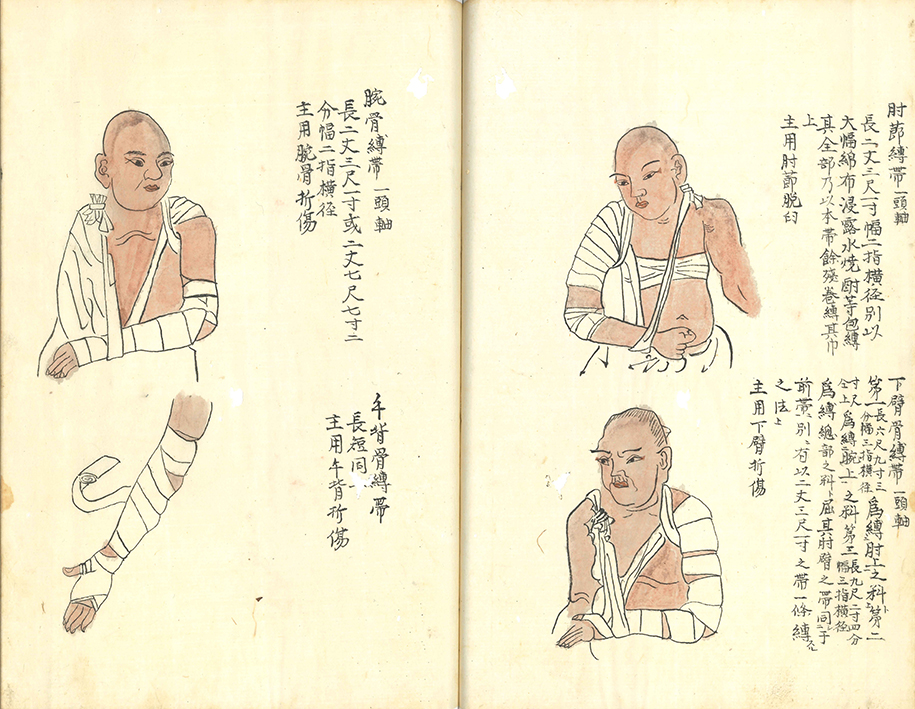 肘莭縛帯一頭軸
長二丈三尺一寸幅二指横径別以
大幅綿布浸露水焼酎等包縛
其全部乃以本帯餘残巻縛其巾
上
主用肘莭脱臼
下臂骨縛帯一頭軸
第一長六尺九寸三分幅三指横径為縛肘上之料第二
寸尺全上為縛腕上之料第三長九尺二寸四分幅三指横径
為縛總部之料屈其肘臂之帯同于
前帯別有以二丈三尺一寸之帯一條縛
之法
主用下臂折傷
腕骨縛帯一頭軸
長二丈三尺一寸或二丈七尺七寸二
分幅二指横径
主用腕骨折傷
手背骨縛帯
長短同
主用手背折傷